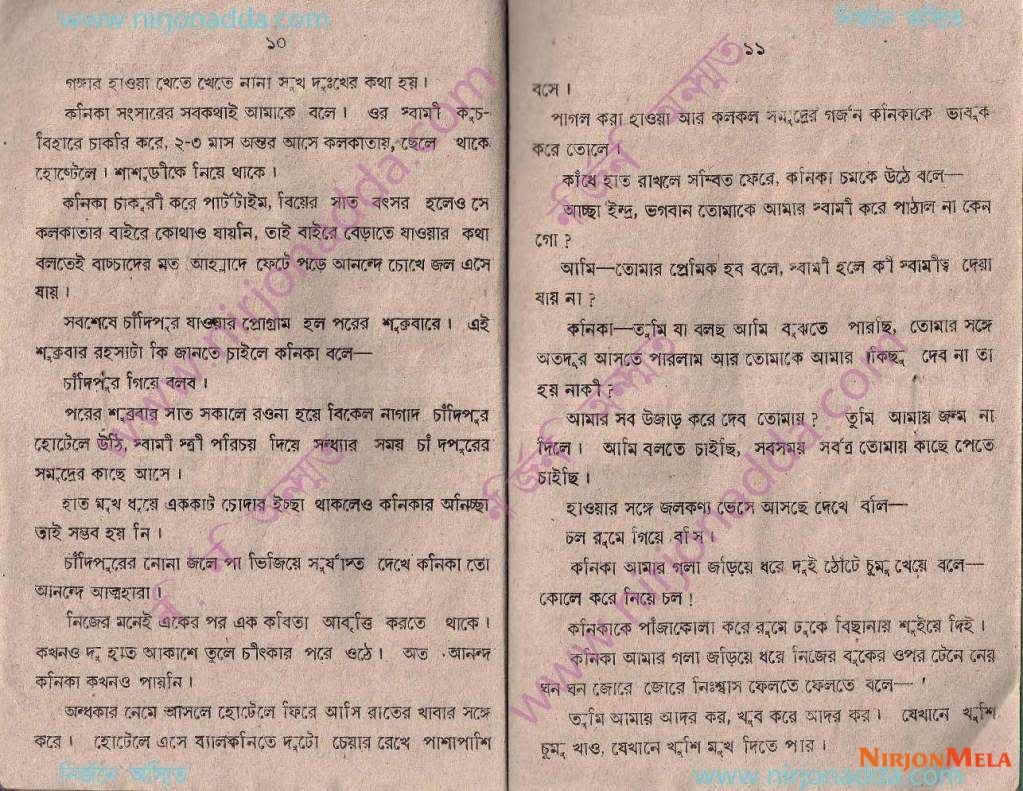 www.nirjonadda.com
নির্জনে অস্মিত
১০
গঙ্গার হাওয়া খেতে খেতে নানা সুখ দুঃখের কথা হয়।
কনিকা সংসারের সবকথাই আমাকে বলে। ওর স্বামী কুচ-
বিহারে চাকরি করে, ২-৩ মাস অন্তর আসে কলকাতায়, ছেলে থাকে
হোস্টেলে। শাশুড়ীকে নিয়ে থাকে।
কনিকা চাকুরী করে পার্টটাইম, বিয়ের সাত বৎসর হলেও সে
কলকাতার বাইরে কোথাও যায়নি, তাই বাইরে বেড়াতে যাওয়ার কথা
বলতেই বাচ্চাদের মত আহ্লাদে ফেটে পড়ে আনন্দে চোখে জল এসে
যায়।
সবশেষে চাঁদিপুর যাওয়ার প্রোগ্রাম হল পরের শুক্রবারে। এই
শুক্রবার রহস্যটা কি জানতে চাইলে কনিকা বলে—
চাঁদিপুর গিয়ে বলব।
পরের শুক্রবার সাত সকালে রওনা হয়ে বিকেল নাগাদ চাঁদিপুর
হোটেলে উঠি, স্বামী স্ত্রী পরিচয় দিয়ে সন্ধ্যার সময় চাঁদিপুরের
সমুদ্রের কাছে আসে।
হাত মুখ ধুয়ে এককাট চোদার ইচ্ছা থাকলেও কনিকার অনিচ্ছা
তাই সম্ভব হয় নি।
চাঁদিপুরের নোনা জলে পা ভিজিয়ে সূর্যাস্ত দেখে কনিকা তো
আনন্দে আত্মহারা।
নিজের মনেই একের পর এক কবিতা আবৃত্তি করতে থাকে।
কখনও দু হাত আকাশে তুলে চীৎকার পরে ওঠে। অত আনন্দ
কনিকা কখনও পায়নি।
অন্ধকার নেমে আসলে হোটেলে ফিরে আসি রাতের খাবার সঙ্গে
করে। হোটেলে এসে ব্যালকনিতে দুটো চেয়ার রেখে পাশাপাশি
১১
বসে।
পাগল করা হাওয়া আর কলকল সমুদ্রের গর্জন কনিকাকে ভাবুক
করে তোলে।
কাঁধে হাত রাখলে সম্বিত ফেরে, কনিকা চমকে উঠে বলে—
আচ্ছা ইন্দ্র, ভগবান তোমাকে আমার স্বামী করে পাঠাল না কেন
গো?
আমি—তোমার প্রেমিক হব বলে, স্বামী হলে কী স্বামীত্ব দেয়া
যায় না?
কনিকা—তুমি যা বলছ আমি বুঝতে পারছি, তোমার সঙ্গে
অতদূর আসতে পারলাম আর তোমাকে আমার কিছু দেব না তা
হয় নাকী?
আমার সব উজাড় করে দেব তোমায়? তুমি আমায় জন্ম না
দিলে। আমি বলতে চাইছি, সবসময় সর্বত্র তোমায় কাছে পেতে
চাইছি।
হাওয়ার সঙ্গে জলকণা ভেসে আসছে দেখে বলি—
চল রুমে গিয়ে বসি।
কনিকা আমার গলা জড়িয়ে ধরে দুই ঠোঁটে চুমু খেয়ে বলে—
কোলে করে নিয়ে চল!
কনিকাকে পাঁজাকোলা করে রুমে ঢুকে বিছানার শুইয়ে দিই।
কনিকা আমার গলা জড়িয়ে ধরে নিজের বুকের ওপর টেনে নেয়
ঘন ঘন জোরে জোরে নিঃশ্বাস ফেলতে ফেলতে বলে—
তুমি আমায় আদর কর, খুব করে আদর কর। যেখানে খুশি
চুমু খাও, যেখানে খুশি মুখ দিতে পার।
NIRJONMELA
নির্জনে অস্মিত
www.nirjonadda.com